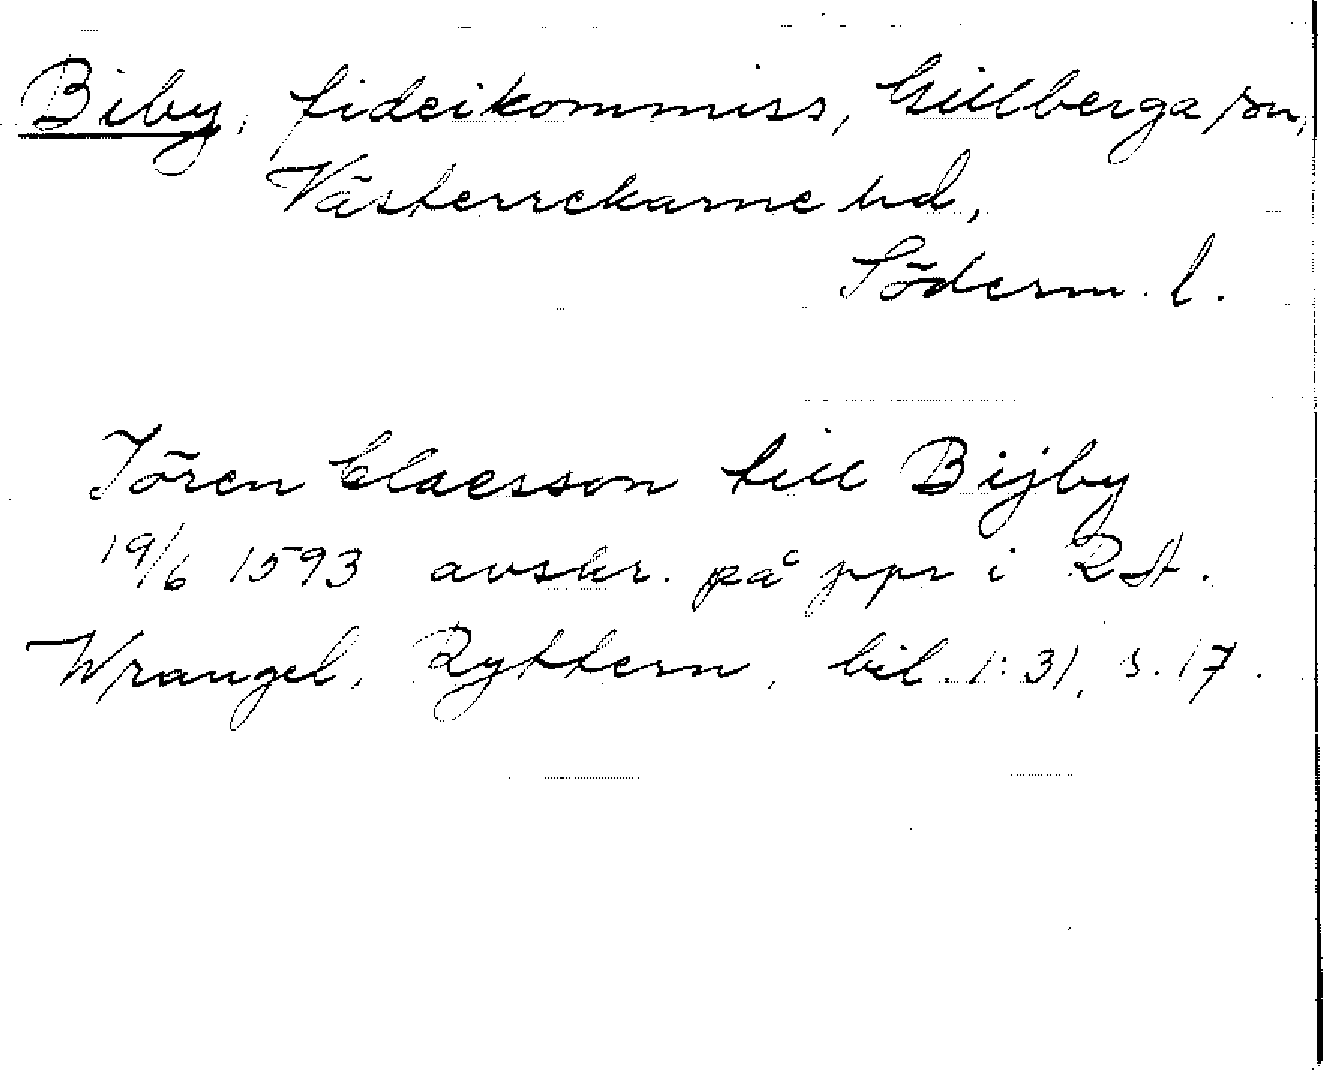 Biby, fideikommiss, Gillberga sn,
Västerrekarne hd,
Söderm. l.
Jören Claesson till Bijby
19/6 1593 avskr. på ppr i RA.
Wrangel, Ryttern, bil. 1:31, s. 17.